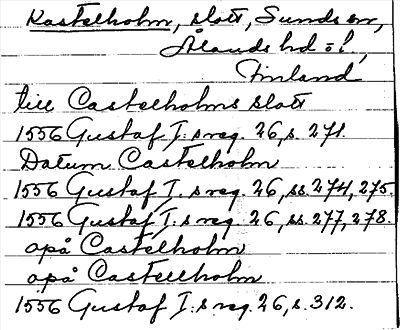 Kastelholm, slott, Sunds sn,
Ålands hd o l.,
Finland
till Castelholms slott
1556 Gustaf I:s reg. 26, s. 271.
Datum Castelholm
1556 Gustaf I:s reg. 26, ss. 274, 275.
1556 Gustaf I:s reg. 26, ss. 277, 278.
opå Castelholm
opå Castellholm
1556 Gustaf I:s reg. 26, s. 312.